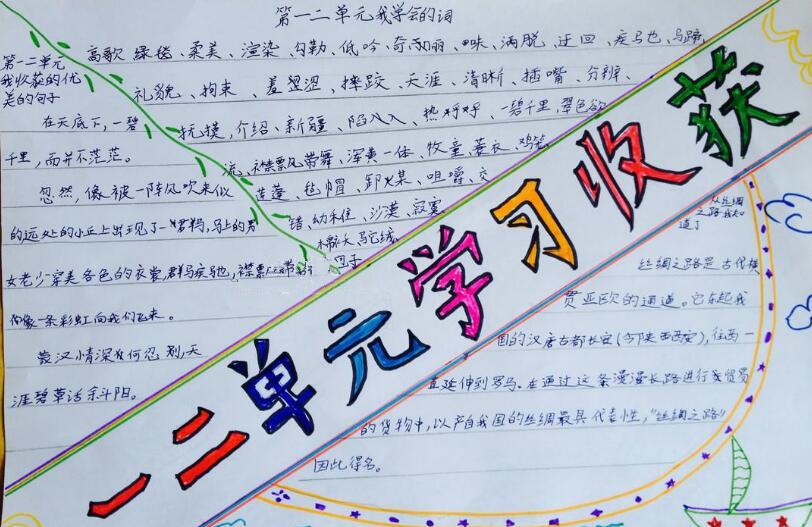 第一二单元我学会的词
高歌、绿毯、柔美、渲染、勾勒、低吟、奇、丽、洒脱、迂回、疾马也、马蹄、
礼貌、拘束、羞涩、摔跤、天涯、清晰、插嘴、分辨、
抚摸、介绍、新疆、陷入、热、一碧千里、翠色欲
流、襟飘带舞、浑黄一体、牧童、蓑衣、鸡笼
莲蓬、毡帽、卸、煤、咀嚼、交
错、幼稚、沙漠、寂寞、
棉袄、驼绒、
包子
第一二单元
我收获的优
美的句子
在天底下,一碧
千里,而并不茫茫。
忽然,像被一阵风吹来似
的远处的小丘上出现了一群马,马上的男
女老少穿美各色的衣裳,群马疾驰,襟飘带舞
像一条彩虹向我们飞来。
蒙汉情深何忍别,天
涯碧草话斜阳。
一二单元学习收获
从丝绸
之路我知
道了
丝绸之路是古代横
贯亚欧的通道。它东起我
国的汉唐古都长安(今陕西西安),往西一
直延伸到罗马。在通过这条漫漫长路进行贸易
的货物中,以产自我国的丝绸最具代表性,"丝绸之路"
因此得名。